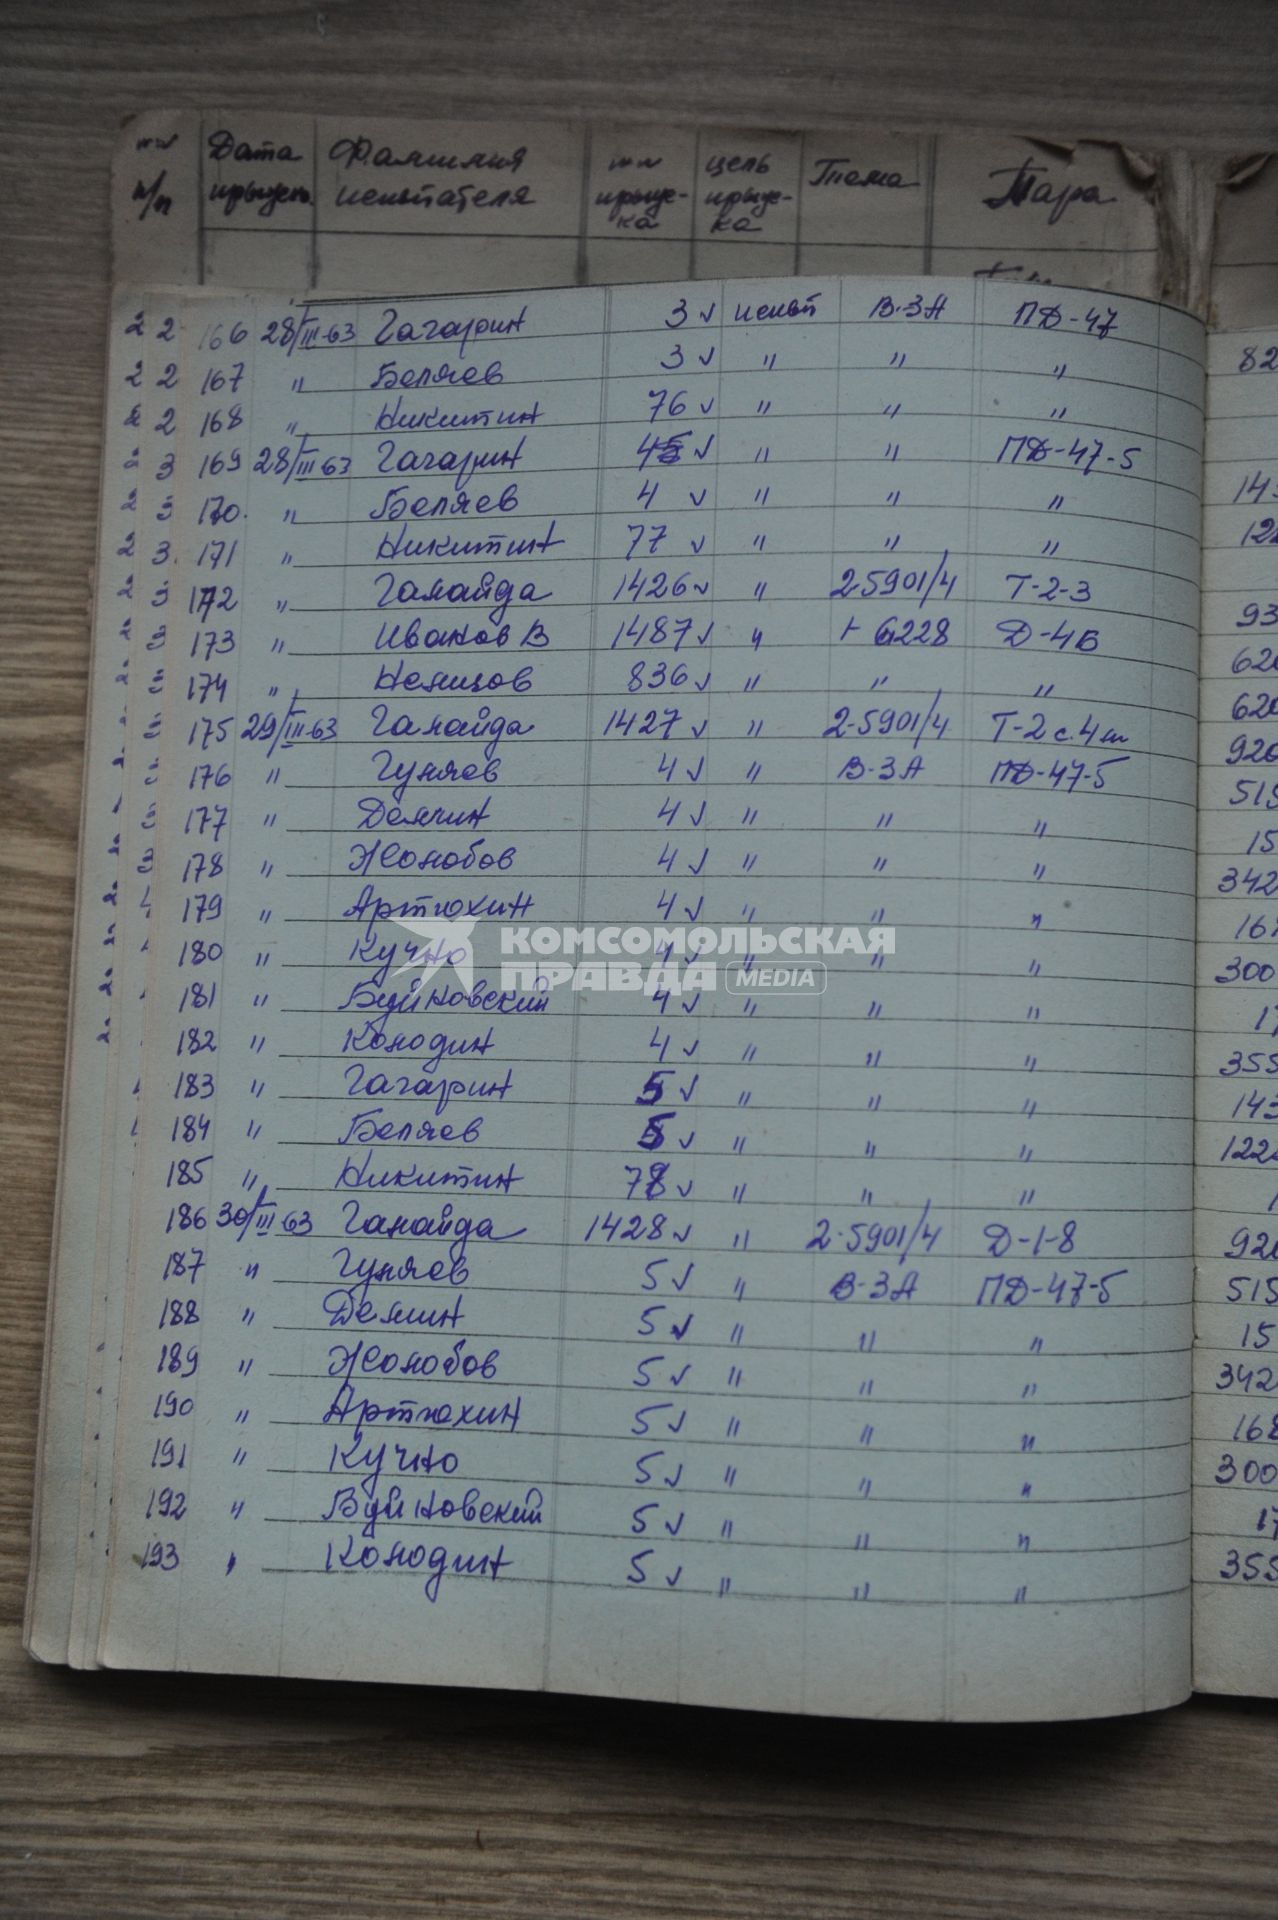 №№ Дата Фамилия №№ цель Тема Тара
п/п прыжка испытателя прыж- прыж-
ка ка
2 2 166 28/III-63 Гагарин 3 ✓ испыт В-3А ПД-47
2 2 167 " Беляев 3 ✓ " " "
2 168 " Никитин 76 ✓ " " "
3 169 28/III 63 Гагарин 4 ✓ " " ПД-47-5
3 170. " Беляев 4 ✓ " " "
3. 171 " Никитин 77 ✓ " " "
3 172 " Галайда 1426 ✓ " 2-5901/4 Т-2-3
173 " Иванов В 1487 ✓ " 6228 Д-4В
174 " Немцов 836 ✓ " " "
175 29/III-63 Галайда 1427 ✓ " 2-5901/4 Т-2 с.4
176 " Гуляев 4 ✓ " В-3А ПД-47-5
177 " Демин 4 ✓ " " "
178 " Жолобов 4 ✓ " " "
179 " Артюхин 4 ✓ " " "
180 " Кучно 4 ✓ " " "
181 " Буйновский 4 ✓ " " "
182 " Колодин 4 ✓ " " "
183 " Гагарин 5 ✓ " " "
184 " Беляев 5 ✓ " " "
185 " Никитин 78 ✓ " " "
186 30/III 63 Галайда 1428 ✓ " 2-5901/4 Д-1-8
187 " Гуляев 5 ✓ " В-3А ПД-47-5
188 " Демин 5 ✓ " " "
189 " Жолобов 5 ✓ " " "
190 " Артюхин 5 ✓ " " "
191 " Кучно 5 ✓ " " "
192 " Буйновский 5 ✓ " " "
193 " Колодин 5 ✓ " " "
КОМСОМОЛЬСКАЯ
ПРАВДА MEDIA
82
93
620
620
920
515
15
342
161
300
17
355
143
515
15
342
168
300
17
355